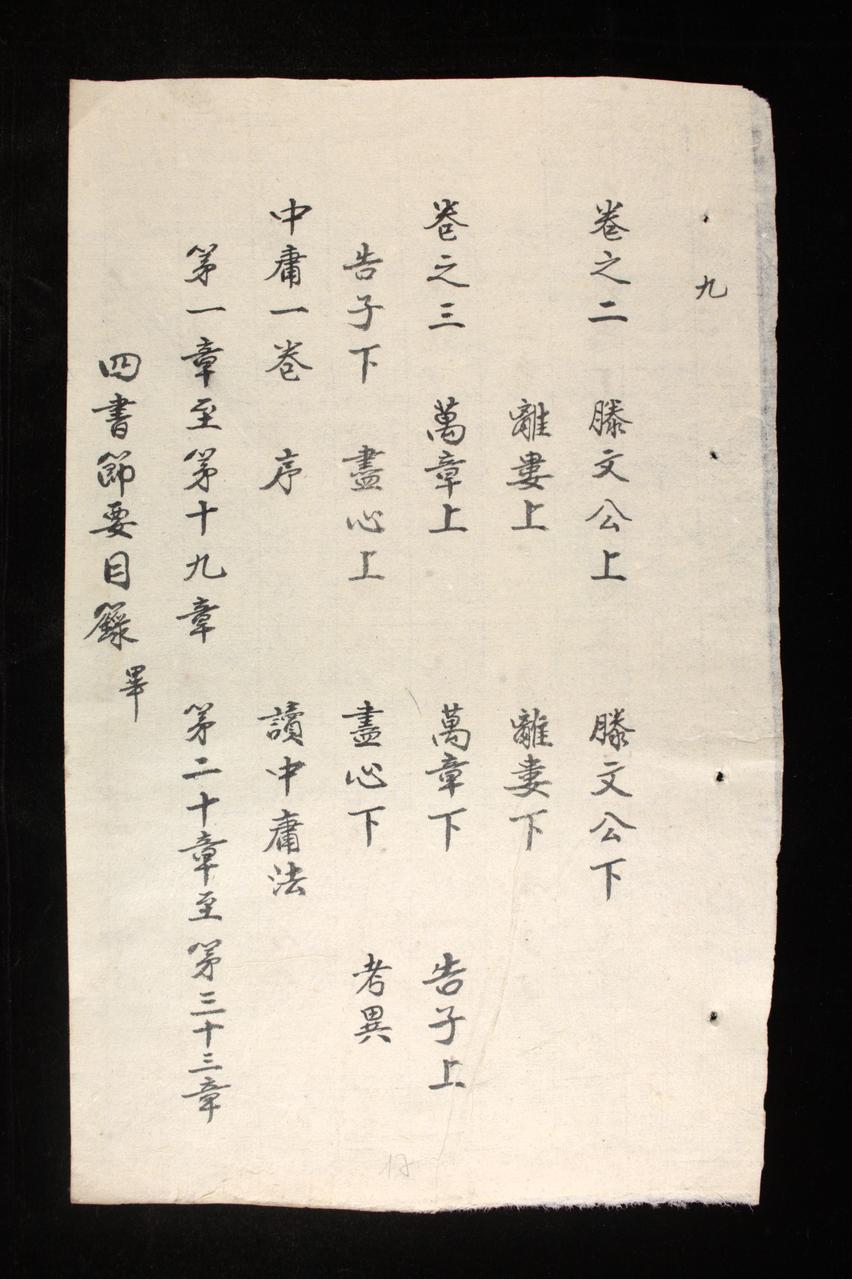 九
卷之二　滕文公上　滕文公下
離婁上　離婁下
卷之三　萬章上　萬章下　告子上
告子下　盡心上　盡心下　考異
中庸一卷　序　讀中庸法
第一章至第十九章　第二十章至第三十三章
四書節要目錄畢